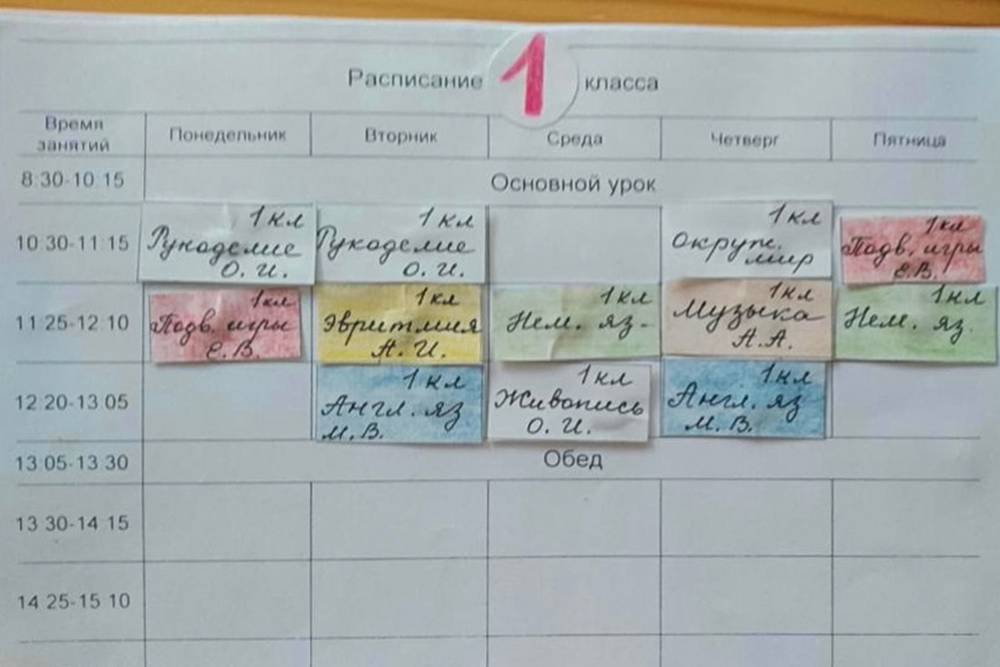 Расписание 1 класса
Время занятий Понедельник Вторник Среда Четверг Пятница
8:30-10:15 Основной урок
10:30-11:15
1 кл
Рукоделие
О. И.
1 кл
Рукоделие
О. И.
1 кл
Окруж.
мир
1 кл
Подв. игры
Е.В.
11:25-12:10
1 кл
Подв. игры
Е.В.
1 кл
Эвритмия
А. И.
1 кл
Нем. яз.
1 кл
Музыка
А.А.
1 кл
Нем. яз.
12:20-13:05
1 кл
Англ. яз
М. В.
1 кл
Живопись
О. И.
1 кл
Англ. яз
М. В.
13:05-13:30 Обед
13:30-14:15
14:25-15:10